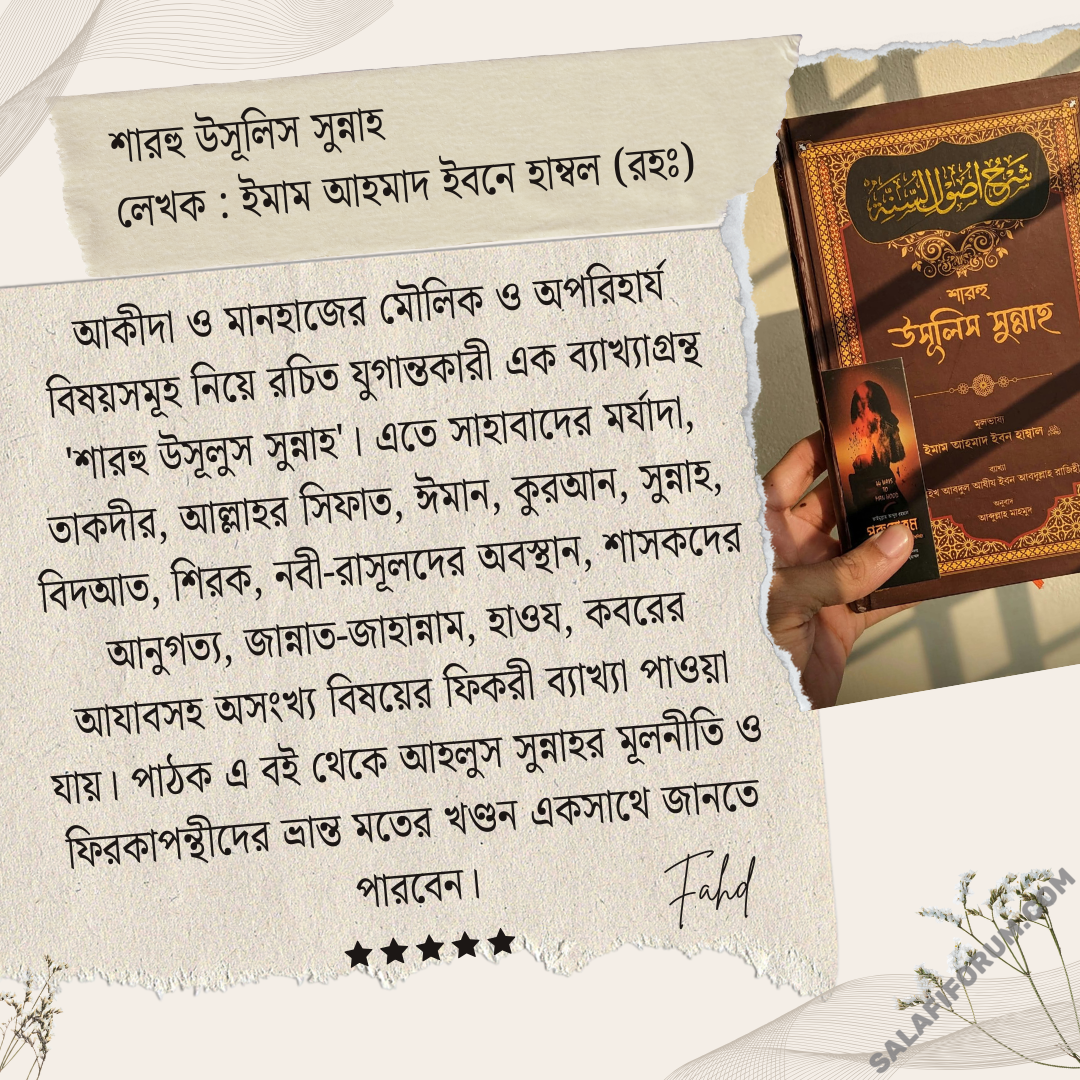 শারহু উসূলিস সুন্নাহ
লেখক : ইমাম আহমাদ ইবনে হাম্বল (রহঃ)
আকীদা ও মানহাজের মৌলিক ও অপরিহার্য
বিষয়সমূহ নিয়ে রচিত যুগান্তকারী এক ব্যাখ্যাগ্রন্থ
'শারহু উসূলুস সুন্নাহ'। এতে সাহাবাদের মর্যাদা,
তাকদীর, আল্লাহর সিফাত, ঈমান, কুরআন, সুন্নাহ,
বিদআত, শিরক, নবী-রাসূলদের অবস্থান, শাসকদের
আনুগত্য, জান্নাত-জাহান্নাম, হাওয, কবরের
আযাবসহ অসংখ্য বিষয়ের ফিকরী ব্যাখ্যা পাওয়া
যায়। পাঠক এ বই থেকে আহলুস সুন্নাহর মূলনীতি ও
ফিরকাপন্থীদের ভ্রান্ত মতের খণ্ডন একসাথে জানতে
পারবেন।
Fahd
شرح أصول السنة
শারহু
উসূলিস সুন্নাহ
মূলভাষ্য
ইমাম আহমাদ ইবন হাম্বাল
ব্যাখ্যা
আবদুল আযীয ইবন আবদুল্লাহ রাজিহী
অনুবাদ
আব্দুল্লাহ মাহমুদ
SALAFIFORUM.COM